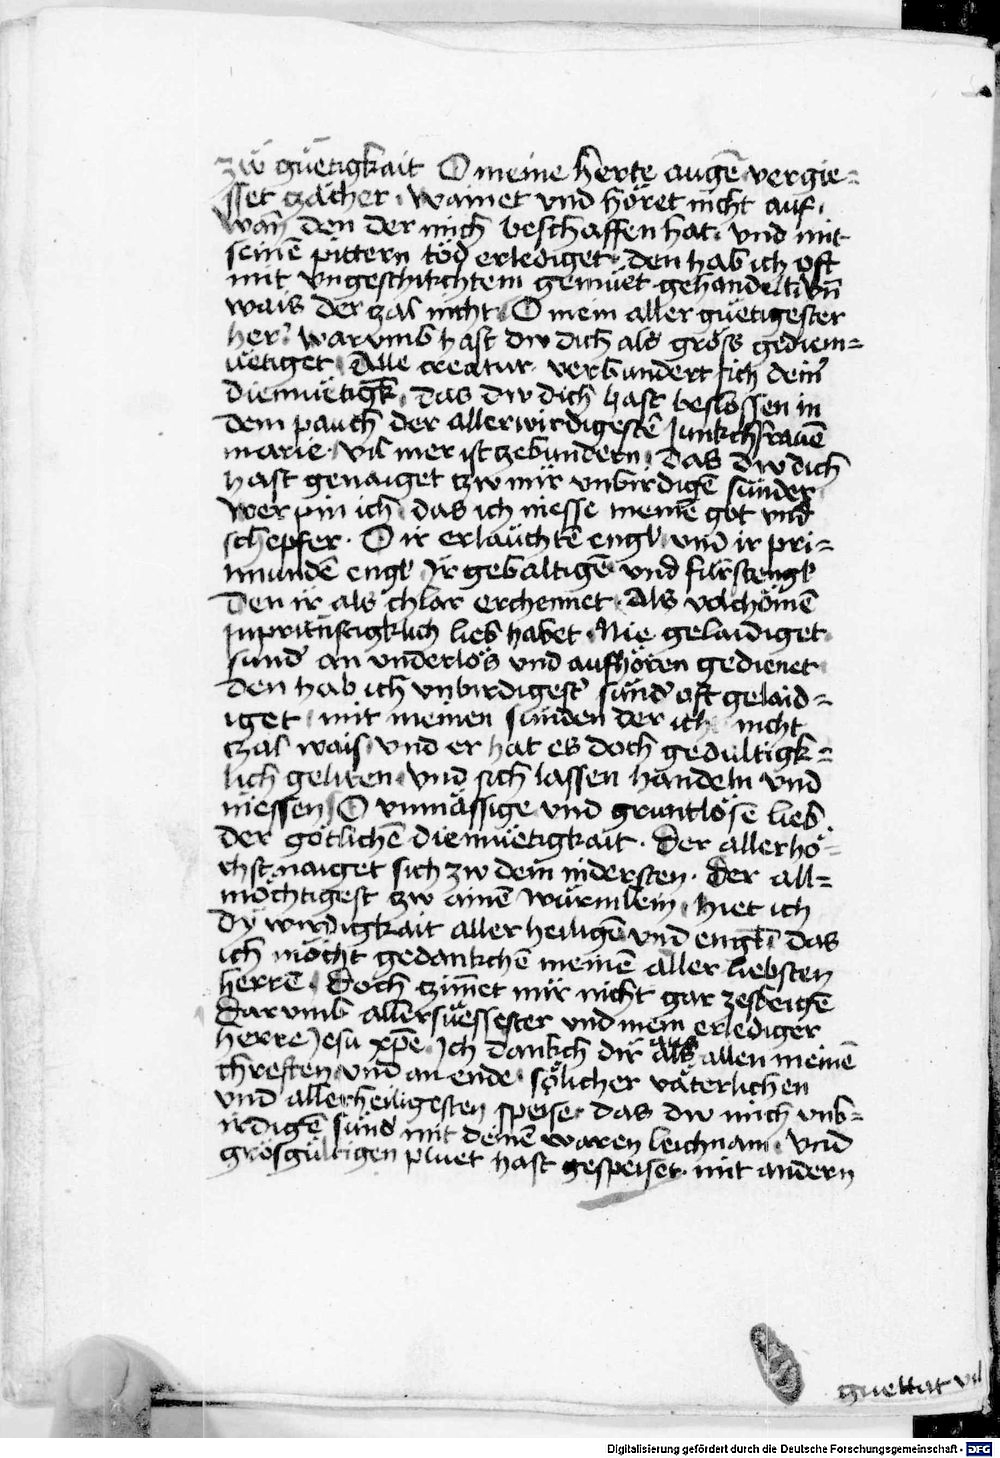 zẅ guetigkait O meine herte augē vergie=
sset czächer · wainet vnd höret nicht auf ·
wañ den der mich beschaffen hat · vnd mit
seinē pittern töd erlediget · den hab ich oft
mit vngeschikchtem gemüet gehandelt · vñ
wais der zal nicht · O mein aller güetigester
her? warumb hast dw dich als gröss gediem=
üetiget · Alle creatur verbundert sich dein?
diemüetigk · das dw dich hast beslossen in
dem pauch der allerwirdigestē Junkchfrauē
marie · vil mer ist zebundern · das dw dich
hast genaiget czw mir vnbirdigē sünder
wer pin ich · das ich niesse meinē got vnd
schepfer · O ir erlauchtē engl · vnd ir pri=
mundē engl · Ir gebaltigē vnd fürstengl
den ir als chlar erchennet · Als volchömē
Inprünstigklich lieb habet · Nie gelaidiget
sund an vnderlös vnd aufhören gedienet
den hab ich vnbirdigest sünd oft gelaid=
iget · mit meinen sünden der ich nicht
czal wais · vnd er hat es doch gedultigk=
lich geliten · vnd sich lassen handeln vnd
niessen · O vnmässige vnd gruntlösē lieb
der götlichē diemüetigkait · Der allerhö=
chst naiget sich zw dem nidersten · Der all=
möchtigest zw ainē würmlein · Hiet ich
dÿ wirdigkait aller heiligē vnd engl · das
ich möcht gedankchē meinē aller liebsten
herrē · Doch czimet mir nicht gar zesbeigē
Darumb allersüessester vnd mein erlediger
herre Jesu xpē · Ich dankch dir aus allen meinē
chreften · vnd an ende · sölicher väterlichen
vnd allerheiligesten speise · das dw mich vnb=
irdigē sünd mit deinē waren leichnam · vnd
grösgültigen pluet hast gespeiset · mit andern
guettat vil
Digitalisierung gefördert durch die Deutsche Forschungsgemeinschaft - DFG